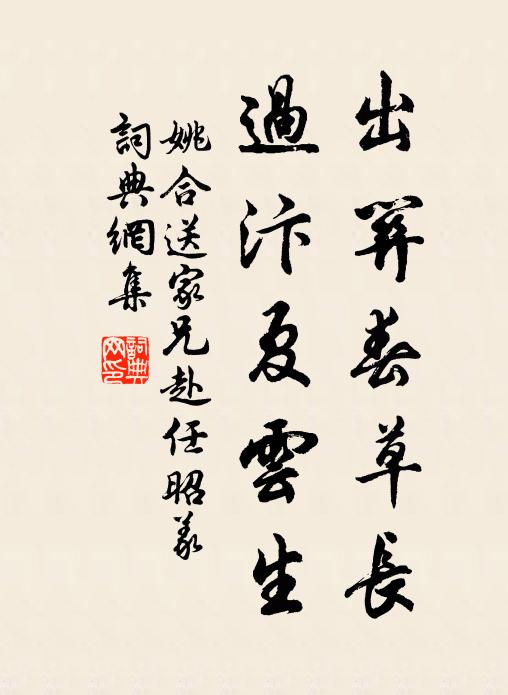 出關春草長
過汴夏雲生
姚合送家兄赴任昭義
詞典網集
詞典網印